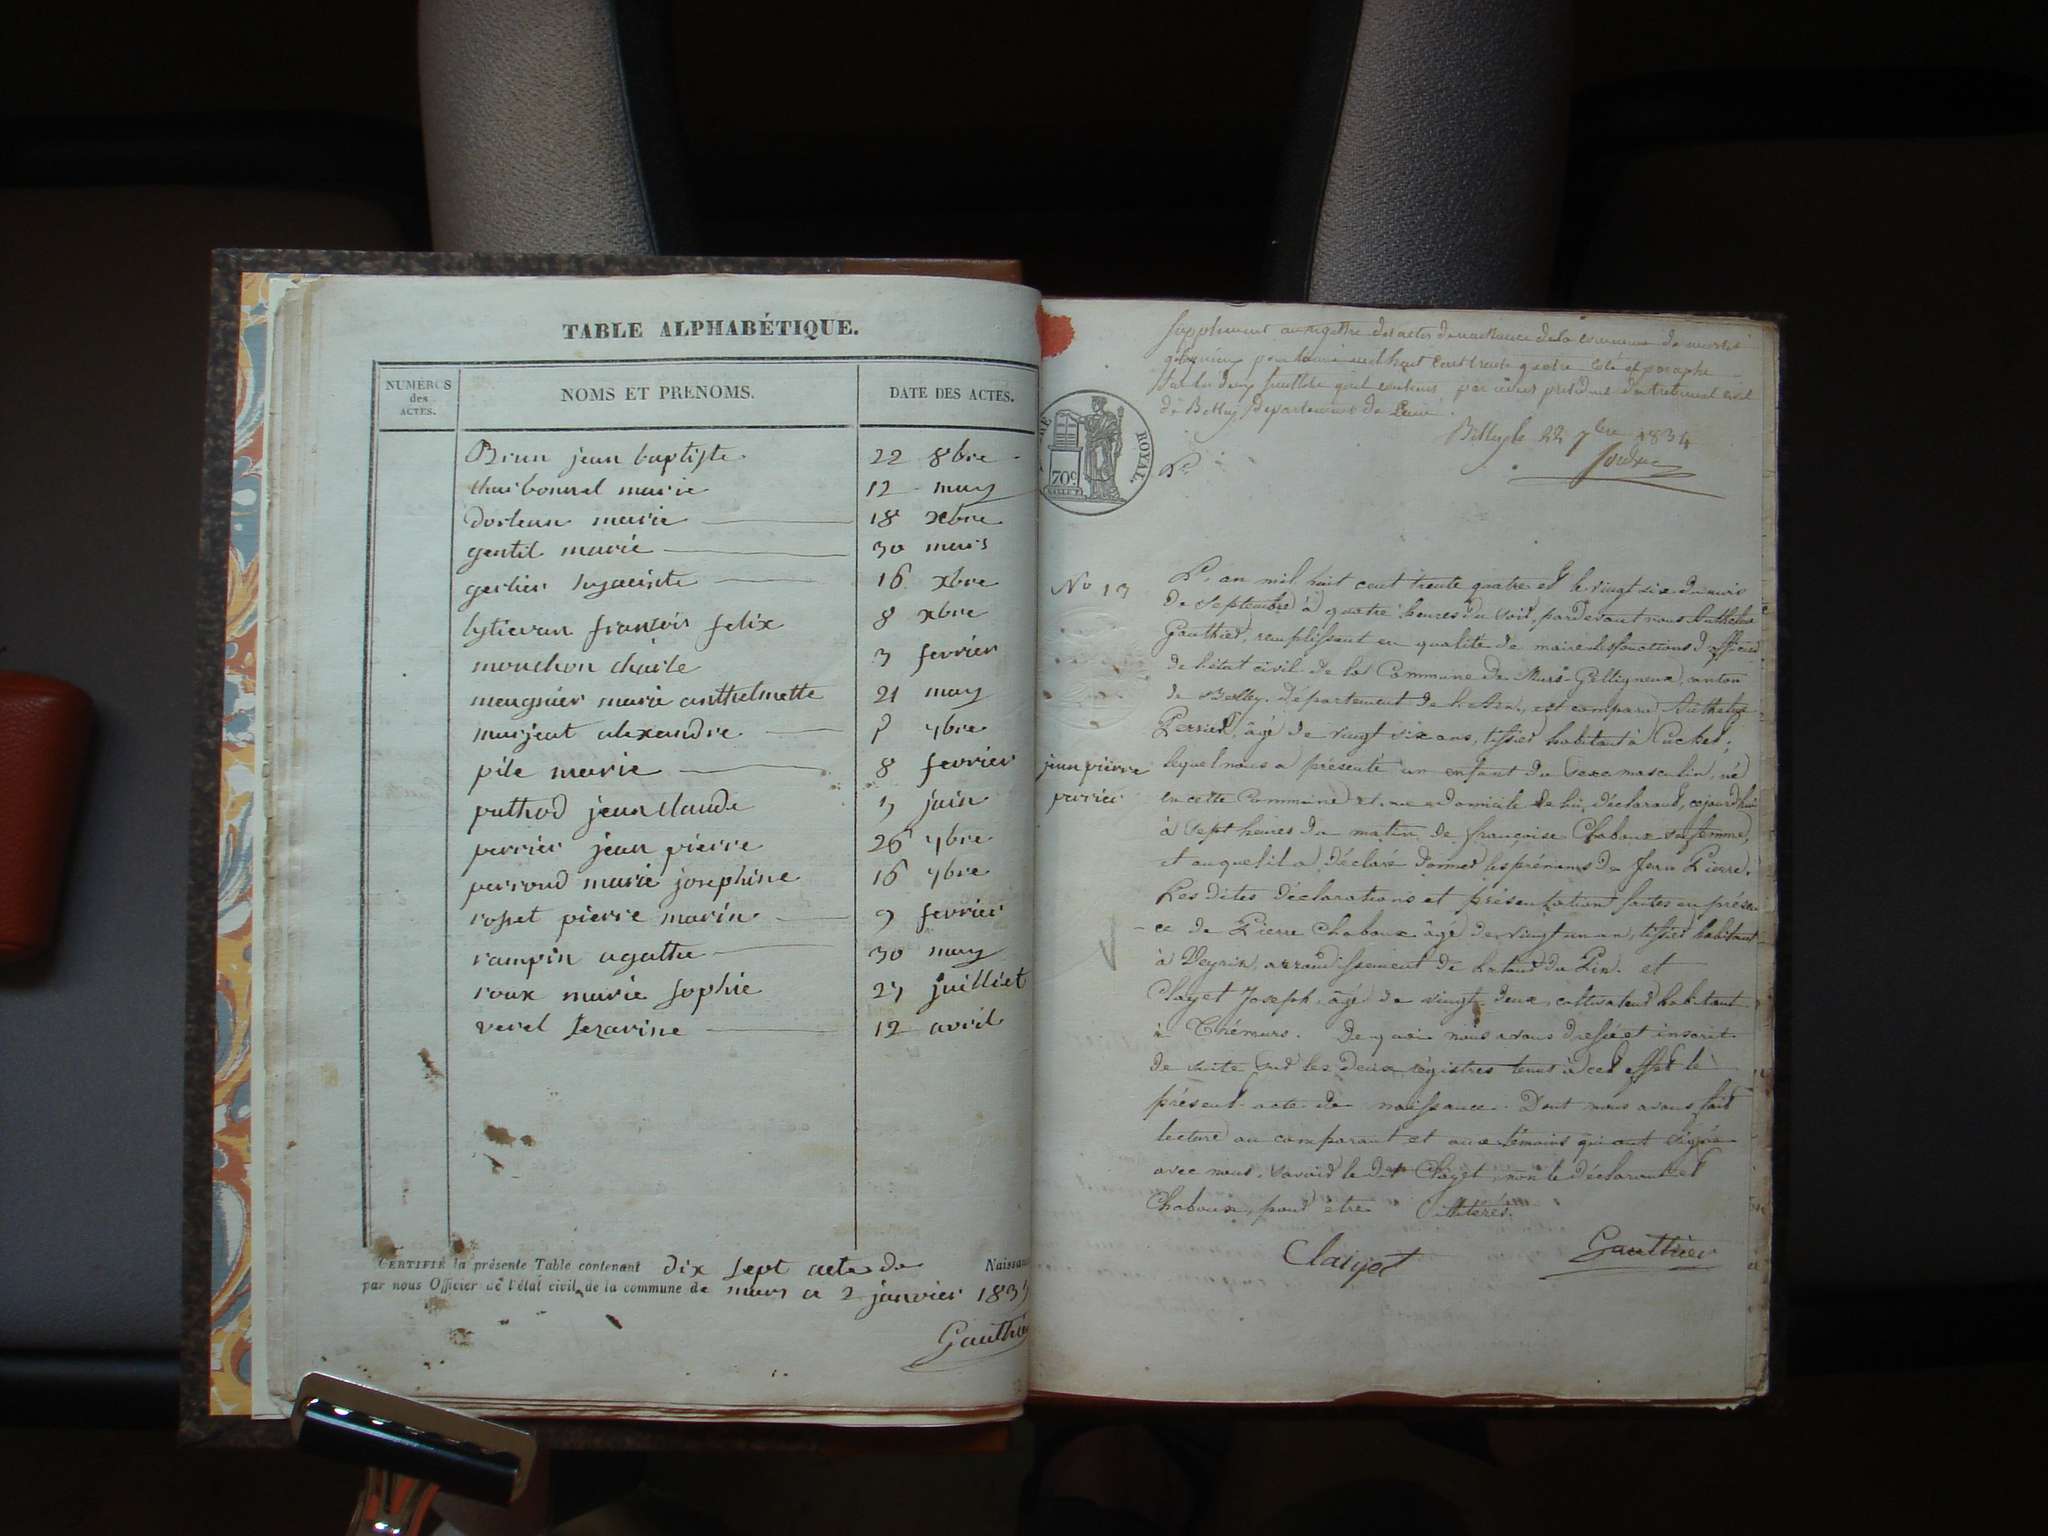 TABLE ALPHABÉTIQUE.
NUMÉROS des ACTES.
NOMS ET PRENOMS.
DATE DES ACTES.
Brun jean baptiste 22 8bre
charbonnel marie 12 may
dorleau marie 18 xbre
gentil marie 30 mars
gerlier hyacinte 16 xbre
françois felix 8 xbre
mouchon charle 3 fevrier
meugnier marie anthelmette 21 may
marjeat alexandre 7bre
pile marie 8 fevrier
puthod jean claude juin
perrier jean pierre 26 7bre
perroud marie josephine 16 7bre
roset pierre marin 9 fevrier
rampin agathe 30 may
roux marie sophie 27 juilliet
verel 12 avril
CERTIFIÉ la présente Table contenant dix sept acte de Naissan
par nous Officier de l'état civil, de la commune de murs ce 2 janvier 1835
Gauthier
Supplement au registre des actes de naissance de la commune de murs
gelignieux pour l'année mil huit cent trente quatre coté et paraphé
sur les deux feuillets qu'il contient, par nous president du tribunal civil
de Belley Departement de l'ain.
Belley le 22 7bre 1834
ROYAL.
70c
No 13
L'an mil huit cent trente quatre et le vingt six du mois
de Septembre à quatre heures du soir, pardevant nous Anthelme
Gauthier, remplissant en qualité de maire les fonctions d'officier
de l'état civil de la Commune de Murs-Gelligneux, canton
de Belley, département de l'Ain, est comparu Anthelme
Perrier, âgé de vingt six ans, tissier habitant à Cuchet;
jean pierre
perrier
lequel nous a présenté un enfant du sexe masculin, né
en cette Commune et au domicile de lui, déclarant, cejourd'hui
à sept heures du matin de françoise Chaboux sa femme,
et auquel il a déclaré donner les prénoms de Jean Pierre.
Les dites déclarations et présentation faites en présen
ce de Pierre Chaboux âgé de vingt un an, tissier habitant
à Veyrin, arrondissement de latour du Pin. et
Clayet Joseph, âgé de vingt deux, cultivateur habitant
à Thémurs. De quoi nous avons dressé et inscrit
de suite sur les deux registres tenus à cet effet le
présent acte de naissance. Dont nous avons fait
lecture au comparant et aux témoins qui ont signé
avec nous, savoir le dit Clayet, non le déclarant et
Chaboux, pour être illitérés.
Claiyet
Gauthier